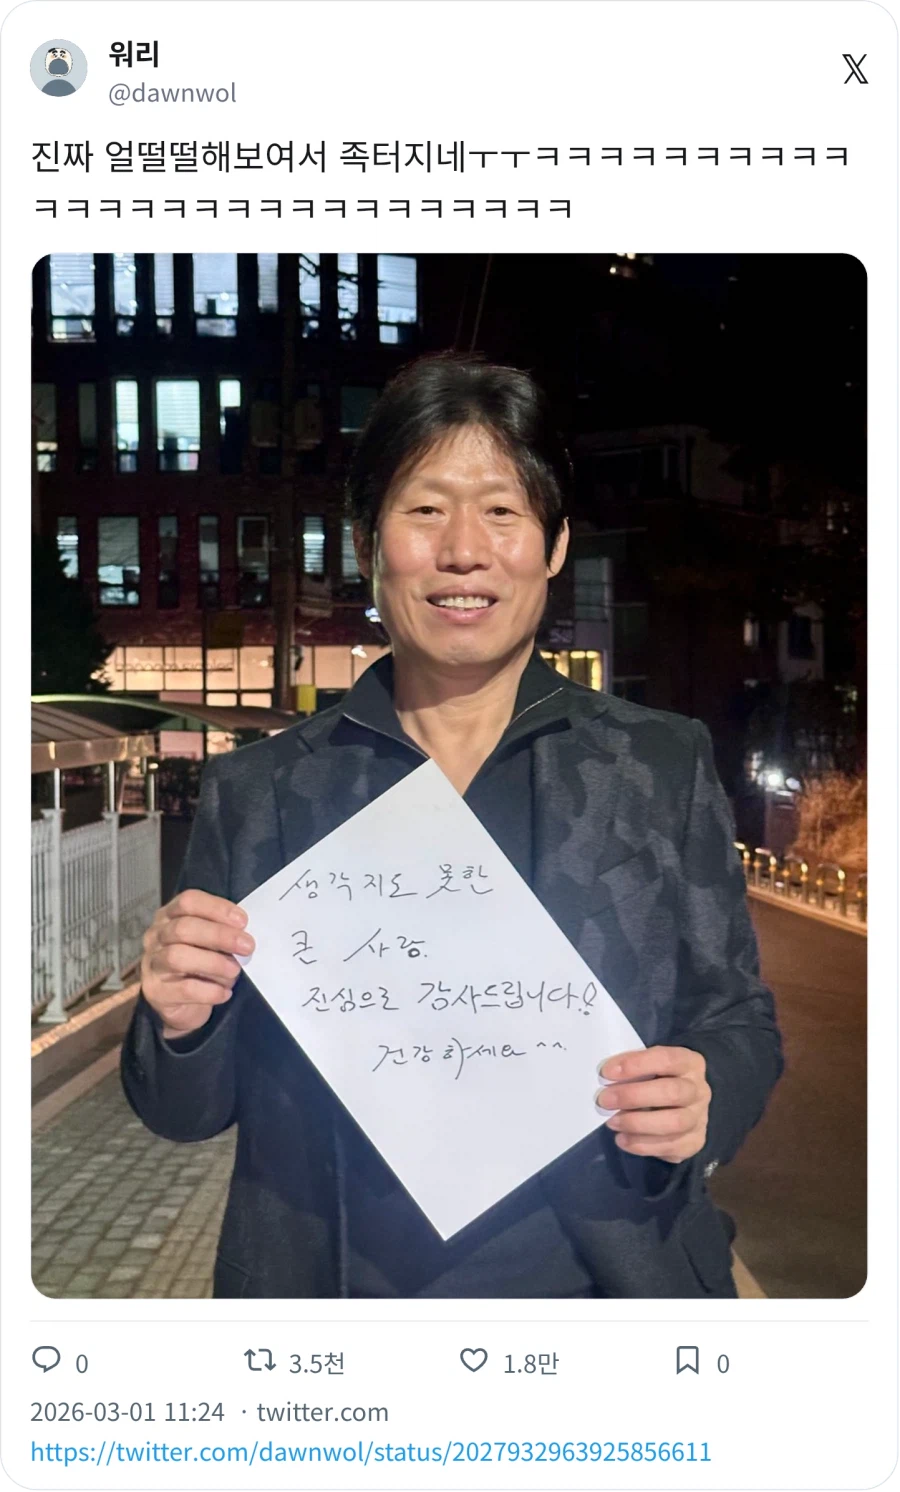 워리
@dawnwol
진짜 얼떨떨해보여서 족터지네ㅜㅜㅋㅋㅋㅋㅋㅋㅋㅋㅋㅋ
ㅋㅋㅋㅋㅋㅋㅋㅋㅋㅋㅋㅋㅋㅋㅋㅋㅋ
생각지도 못한
큰 사랑.
진심으로 감사드립니다!
건강하세요 ^^.
0 3.5천 1.8만 0
2026-03-01 11:24 · twitter.com
https://twitter.com/dawnwol/status/2027932963925856611